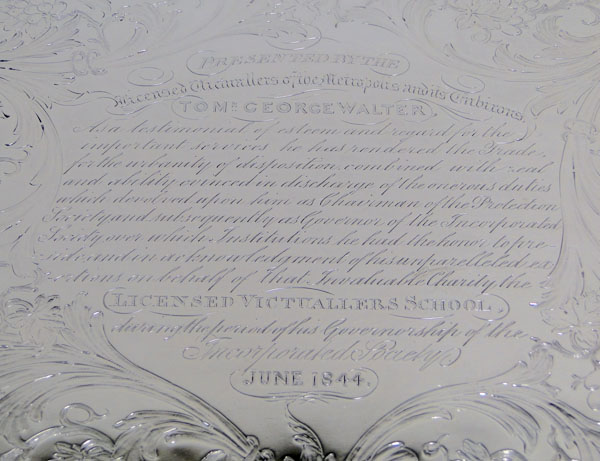 PRESENTED BY THE
Licensed Victuallers of the Metropolis and its Environs,
TO Mr. GEORGE WALTER,
As a testimonial of esteem and regard for the
important services he has rendered the Trade,
for the urbanity of disposition, combined with zeal
and ability evinced in discharge of the onerous duties
which devolved upon him as Chairman of the Protection
Society and subsequently as Governor of the Incorporated
Society over which Institutions he had the honor to pre-
side: and in acknowledgment of his unparelleled ex-
ertions on behalf of That Invaluable Charity the
LICENSED VICTUALLERS SCHOOL,
during the period of his Governorship of the
Incorporated Body
JUNE 1844.